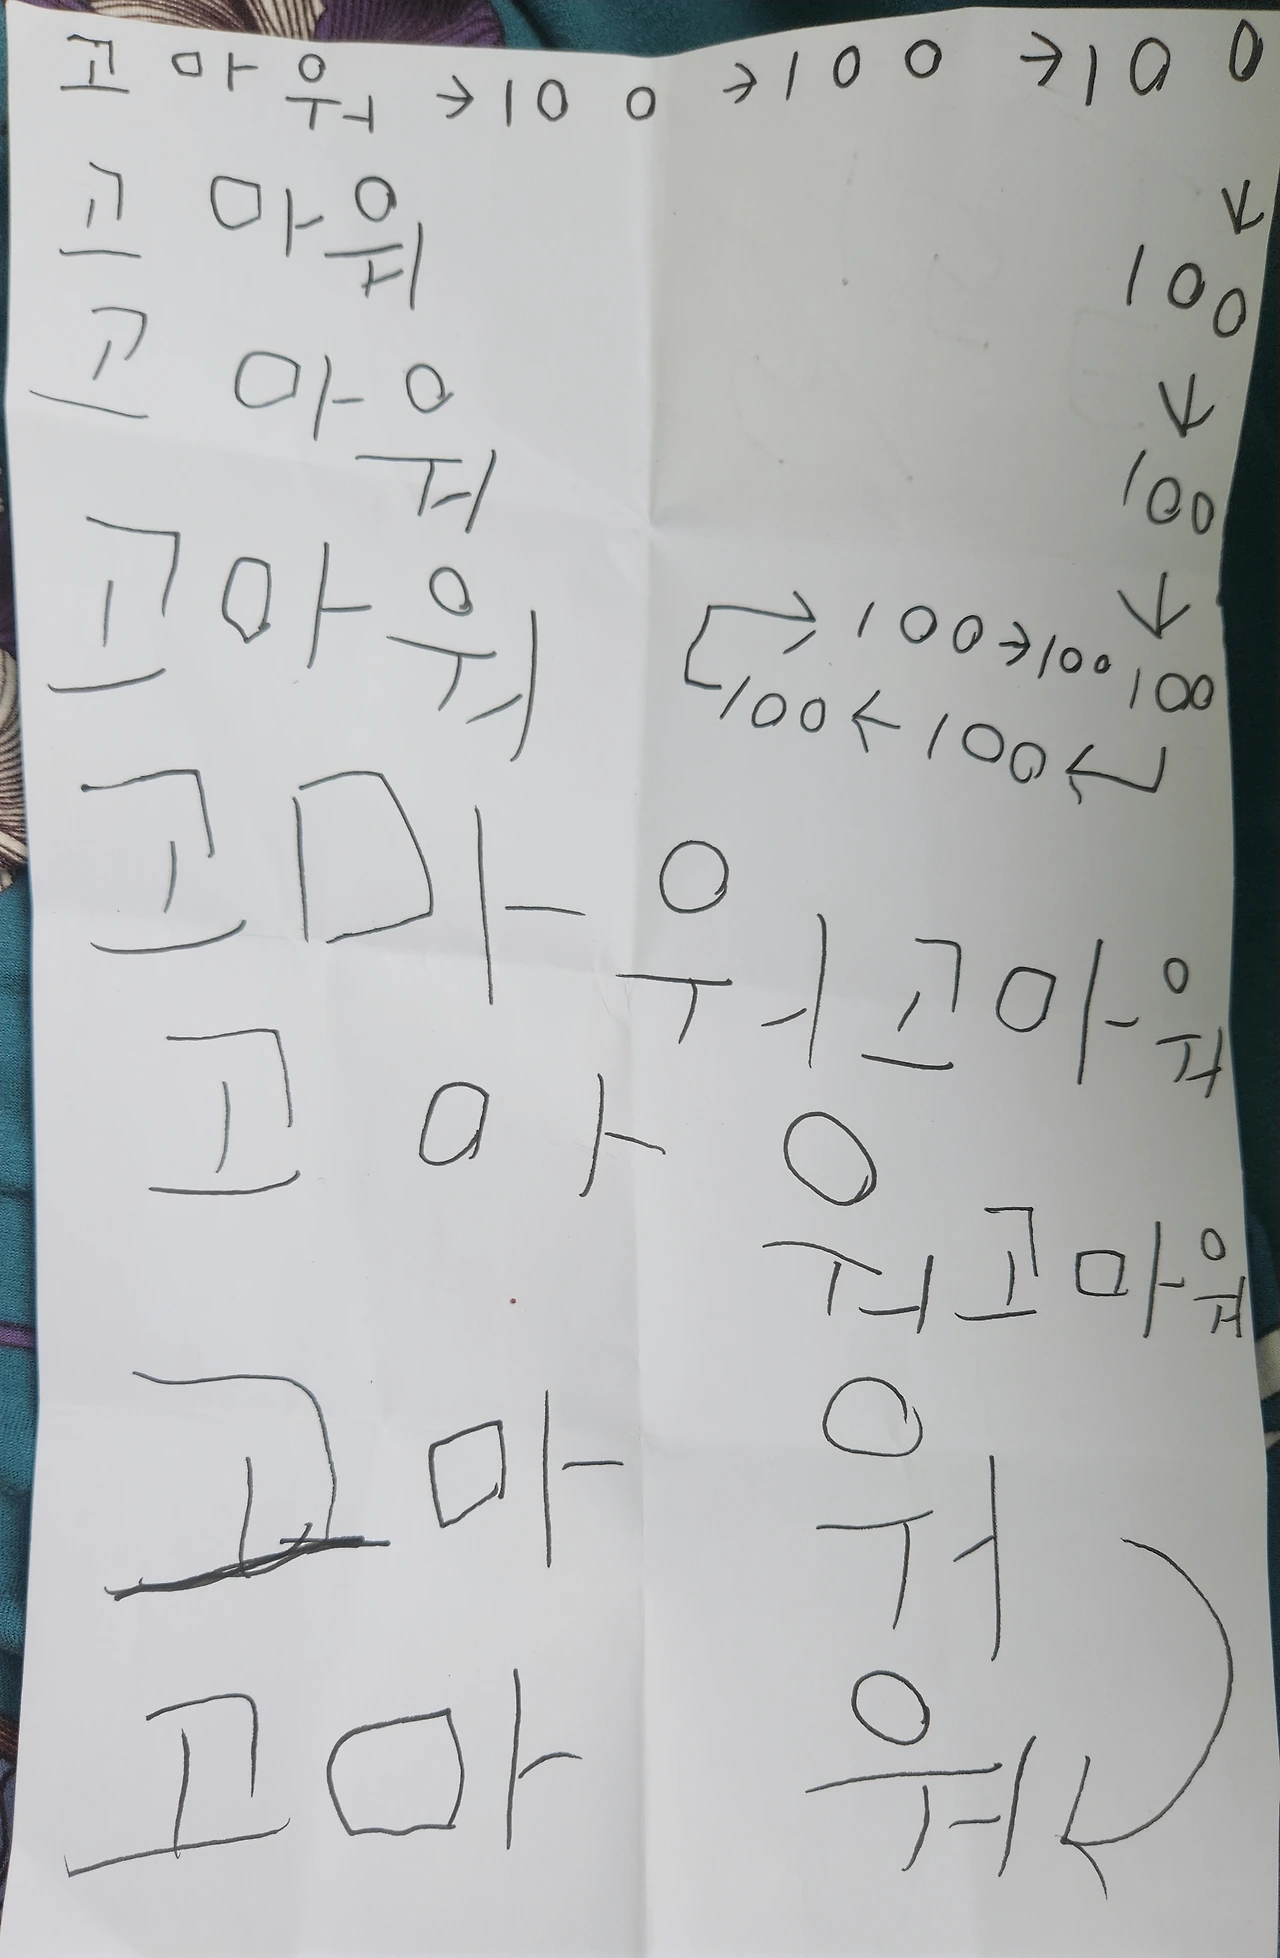 고마워 →100 →100 →100
고마워 ↓
100
고마워 ↓
100
고마워 ↓
→100→100 100
100←100←
고마워 고마워
고마워 고마워
고마워
고마워